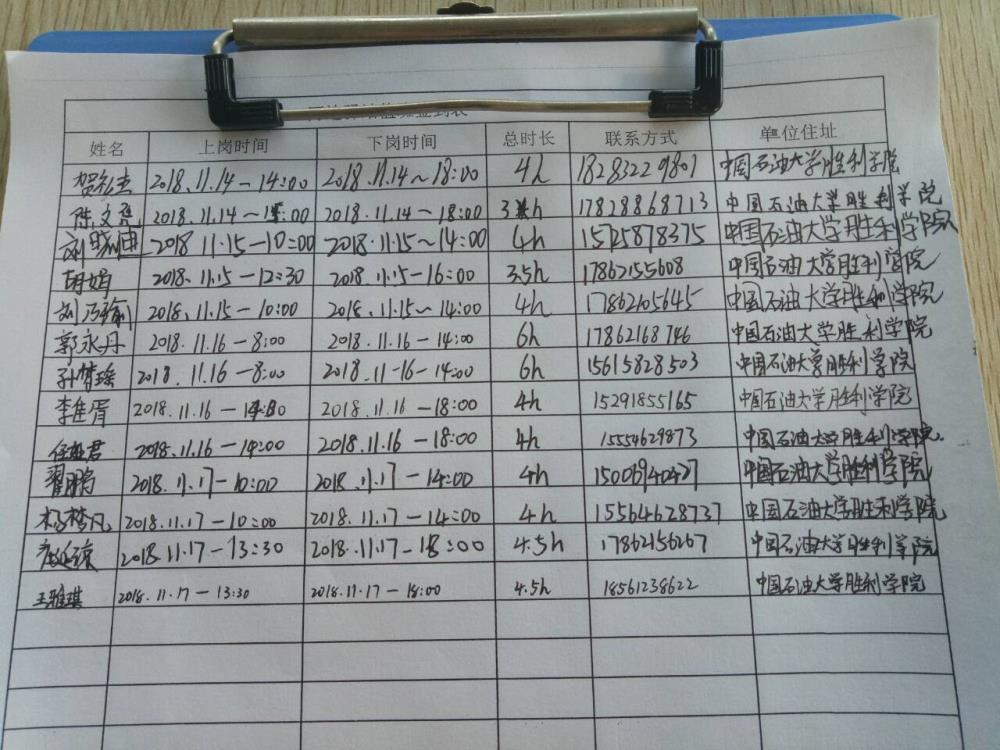 姓名 上岗时间 下岗时间 总时长 联系方式 单位住址
2018.11.14－14:00 2018.11.14～18:00 4h 18283229801 中国石油大学胜利学院
陈文 2018.11.14－ :00 2018.11.14－18:00 3 h 17828868713 中国石油大学胜利学院
刘晓迪 2018.11.15－10:00 2018.11.15～14:00 4h 15725878375 中国石油大学胜利学院
胡娟 2018.11.15－12:30 2018.11.15－16:00 3.5h 17862155608 中国石油大学胜利学院
刘 2018.11.15－10:00 2018.11.15－14:00 4h 17862105645 中国石油大学胜利学院
郭永丹 2018.11.16－8:00 2018.11.16－14:00 6h 17862168746 中国石油大学胜利学院
孙梦瑶 2018.11.16－8:00 2018.11-16-14:00 6h 15615828503 中国石油大学胜利学院
李佳霄 2018.11.16－ 2018.11.16－18:00 4h 15291855165 中国石油大学胜利学院
2018.11.16－14:00 2018.11.16－18:00 4h 15554629873 中国石油大学胜利学院.
翟鹏 2018.11.17－10:00 2018.11.17－14:00 4h 中国石油大学胜利学院
杨梦凡 2018.11.17－10:00 2018.11.17－14:00 4h 15564628737 中国石油大学胜利学院
2018.11.17－13:30 2018.11.17－18:00 4.5h 17862156267 中国石油大学胜利学院
王雅琪 2018.11.17－13:30 2018.11.17－18:00 4.5h 18561238622 中国石油大学胜利学院